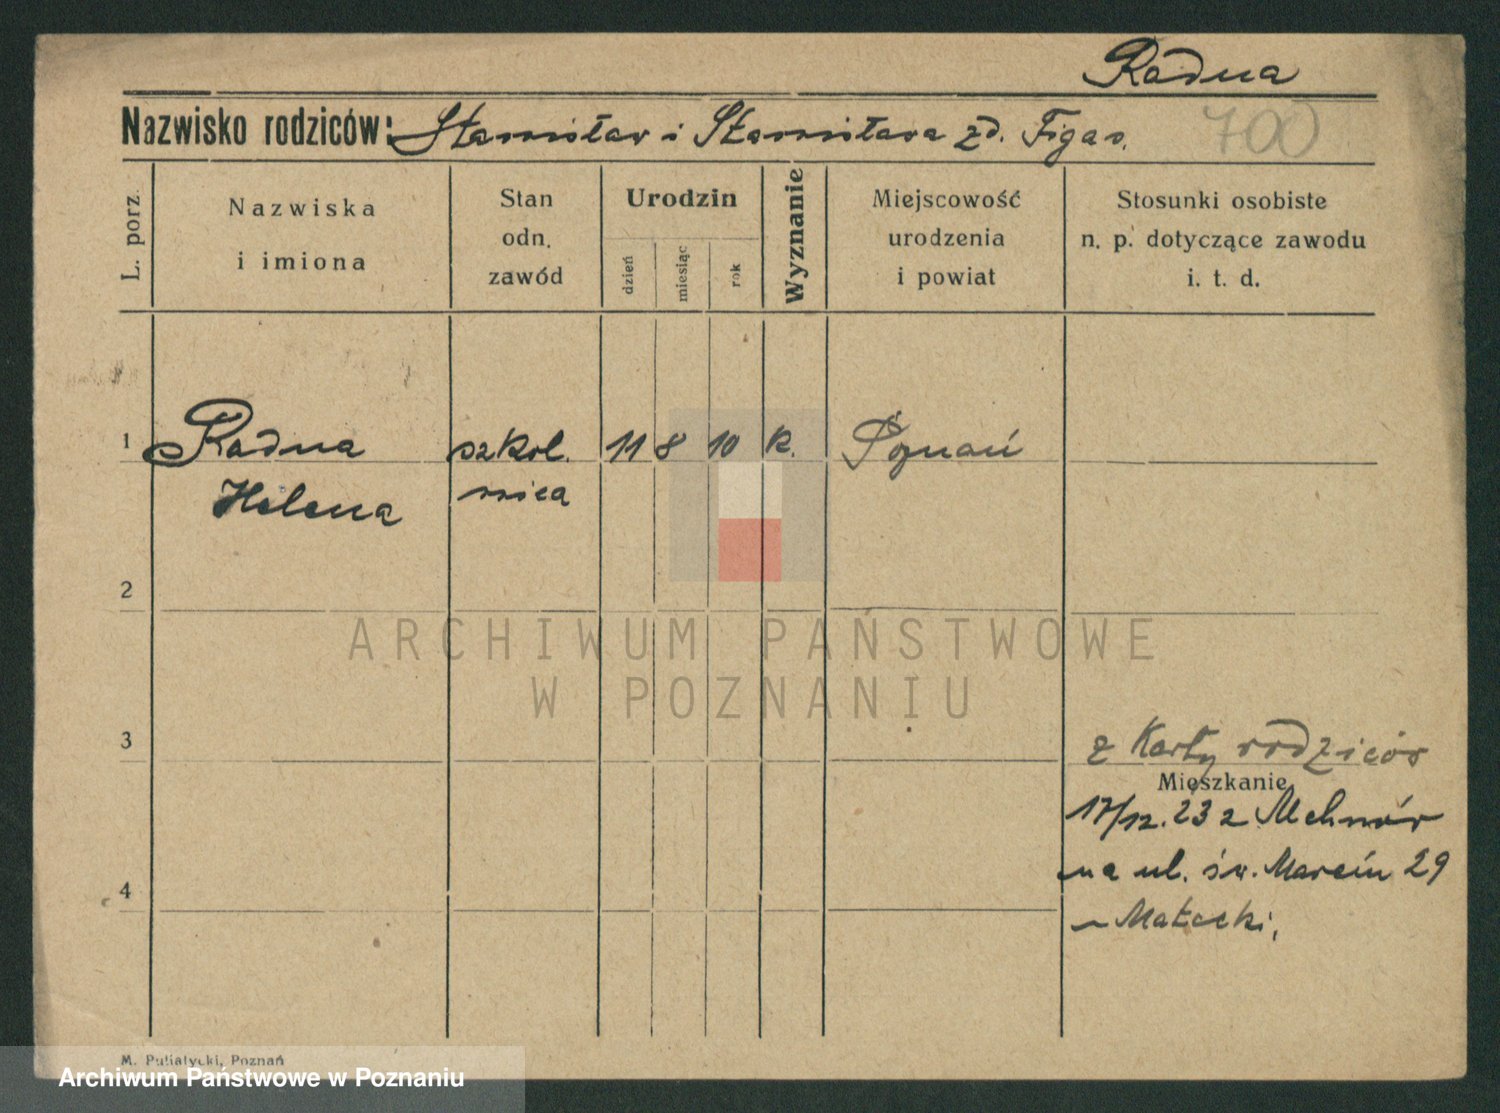 Radna
Nazwisko rodziców: Stanisław i Stanisława zd. Figas.
700
L. porz.
Nazwiska
i imiona
Stan
odn.
zawód
Urodzin
dzień
miesiąc
rok
Wyznanie
Miejscowość
urodzenia
i powiat
Stosunki osobiste
n. p. dotyczące zawodu
i. t. d.
1 Radna szkol. 11 8 10 k. Poznań
Helena nica
2
ARCHIWUM PAŃSTWOWE
W POZNANIU
3
z Karty rodziców
Mieszkanie
17/12. 23 z
na ul. św. Marcin 29
4
M. Putiatycki, Poznań
Archiwum Państwowe w Poznaniu